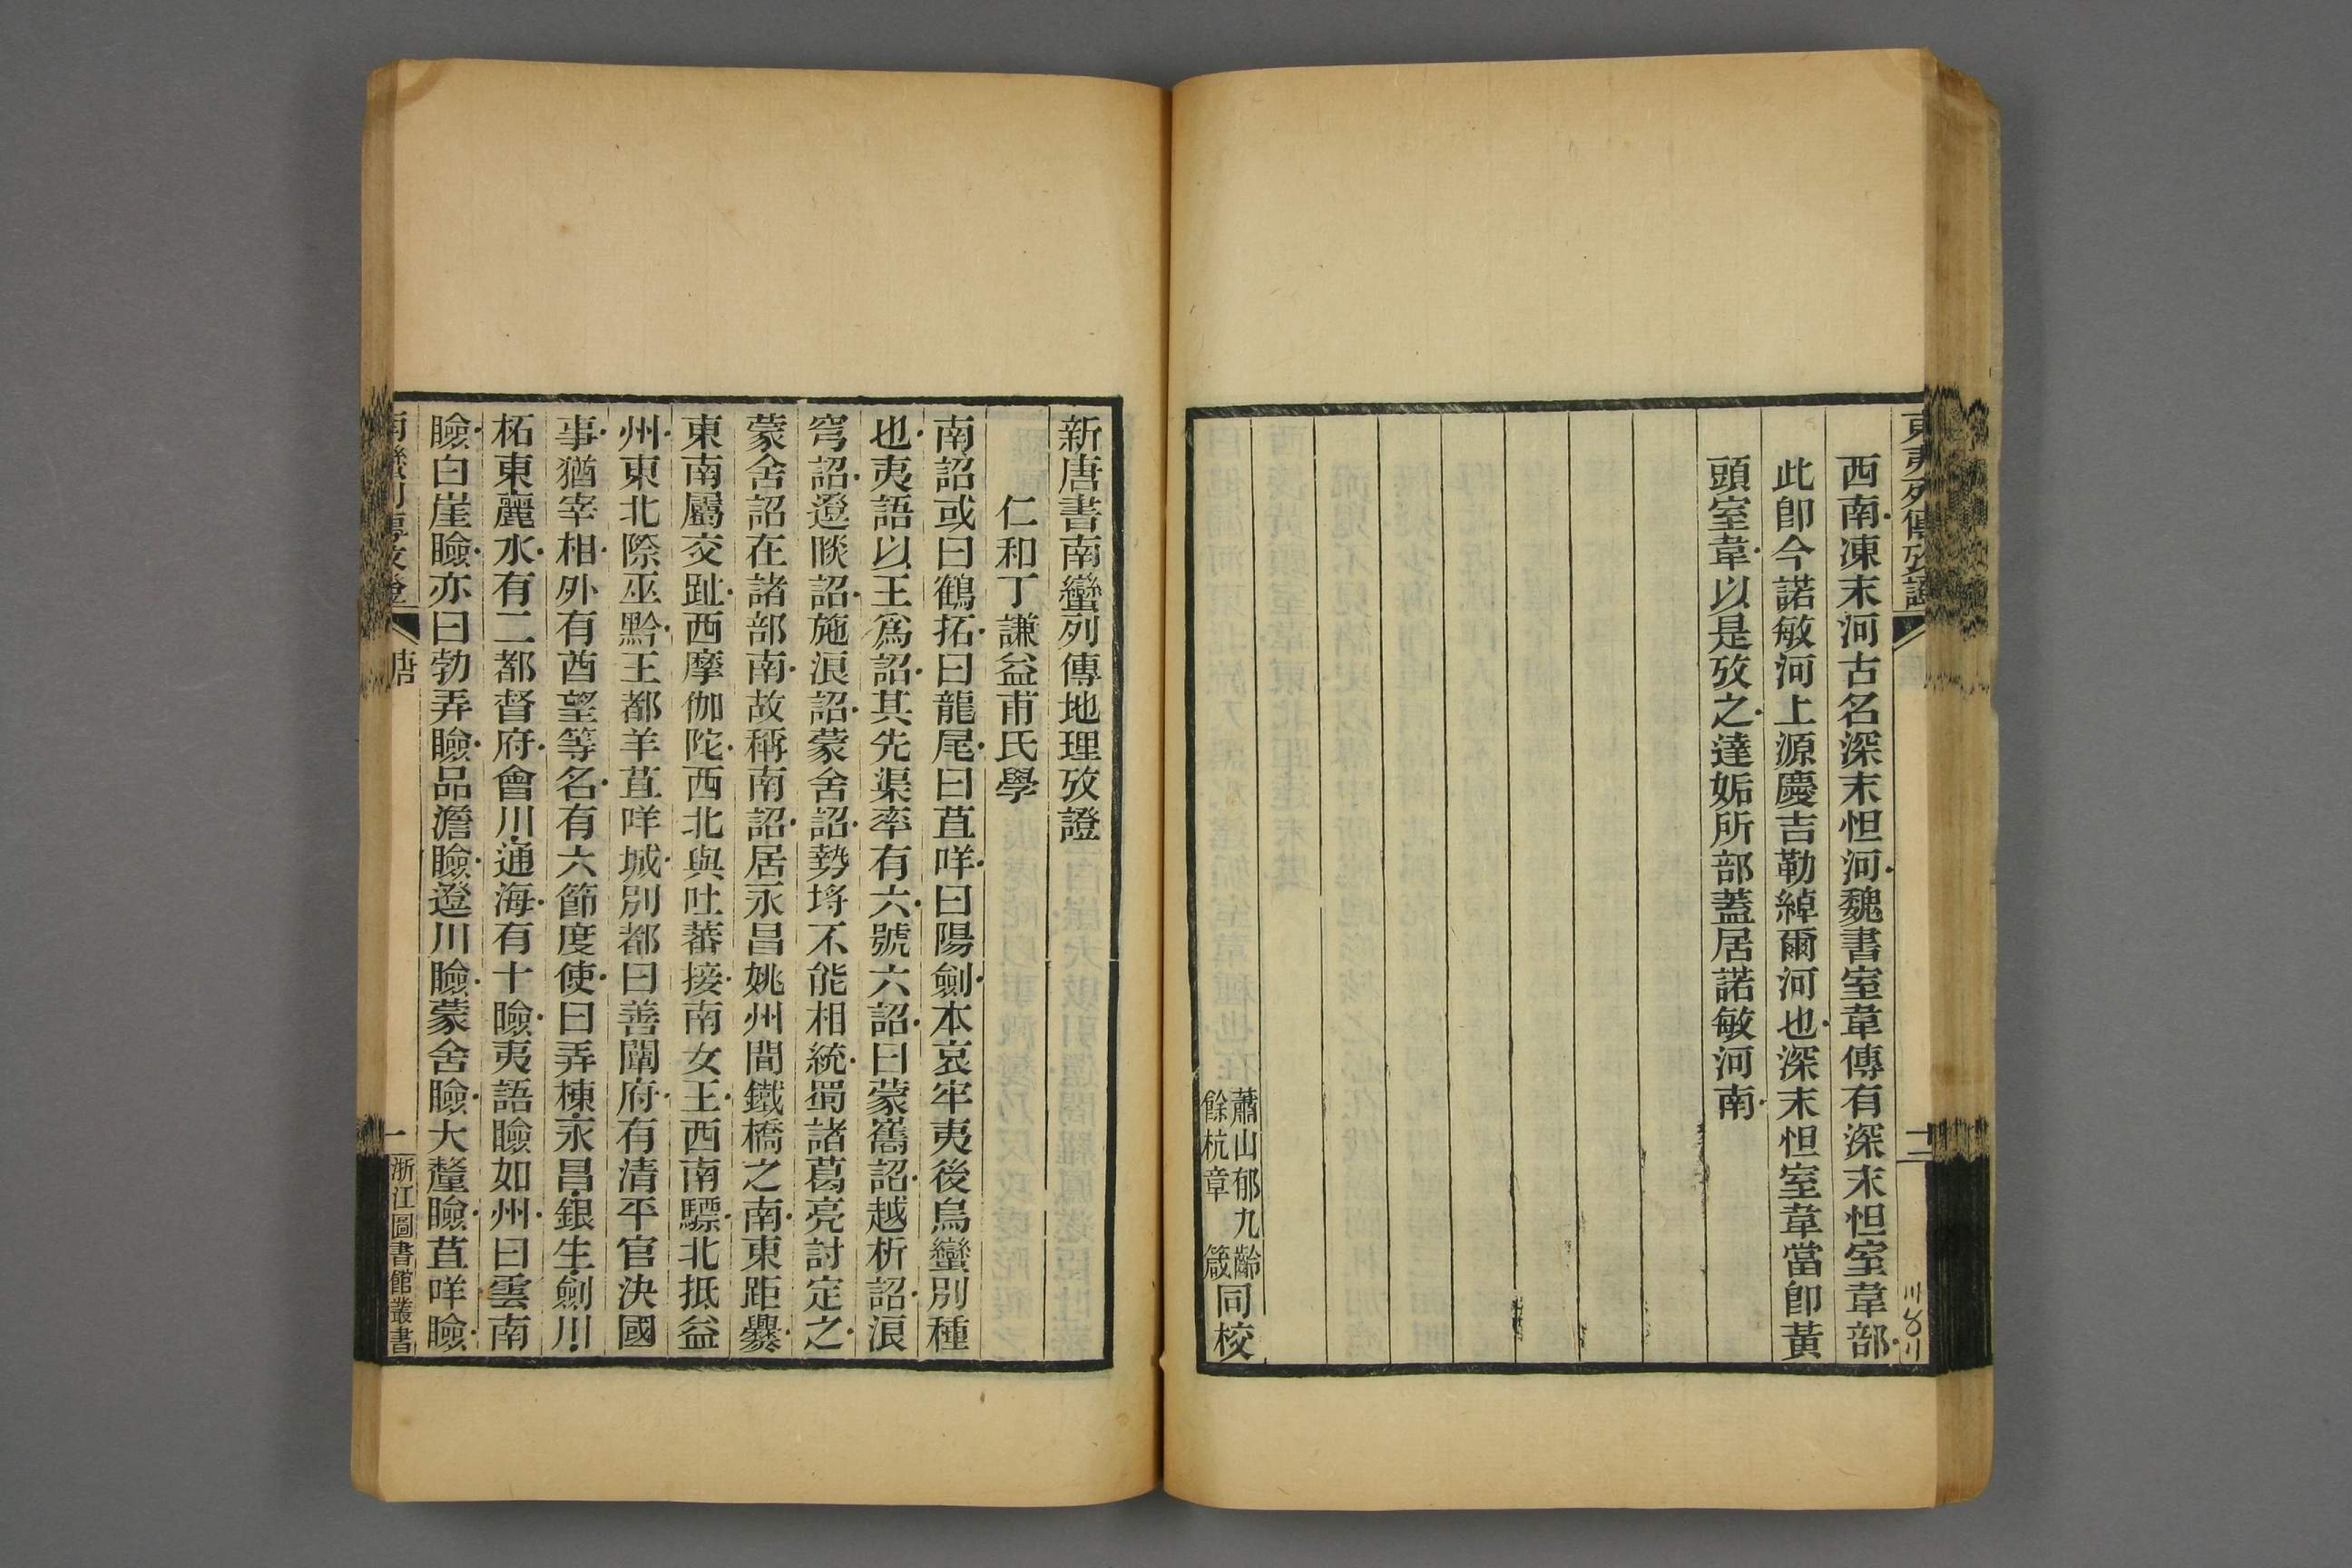 東夷列傳攷證
十二
西南凍末河古名深末怛河魏書室韋傳有深末怛室韋部
此卽今諾敏河上源慶吉勒綽爾河也深末怛室韋當卽黃
頭室韋以是攷之達姤所部蓋居諾敏河南
蕭山郁九齡
餘杭章箴
同校
新唐書南蠻列傳地理攷證
仁和丁謙益甫氏學
南詔或曰鶴拓曰龍尾曰苴咩曰陽劍本哀牢夷後烏蠻別種
也夷語以王爲詔其先渠率有六號六詔曰蒙巂詔越析詔浪
穹詔邆睒詔施浪詔蒙舍詔勢埒不能相統蜀諸葛亮討定之
蒙舍詔在諸部南故稱南詔居永昌姚州間鐵橋之南東距爨
東南屬交趾西摩伽陀西北與吐蕃接南女王西南驃北抵益
州東北際巫黔王都羊苴咩城別都曰善闡府有清平官決國
事猶宰相外有酋望等名有六節度使曰弄棟永昌銀生劍川
柘東麗水有二都督府會川通海有十瞼夷語瞼如州曰雲南
瞼白崖瞼亦曰勃弄瞼品澹瞼邆川瞼蒙舍瞼大釐瞼苴咩瞼
南蠻列傳攷證
唐
一
浙江圖書館叢書